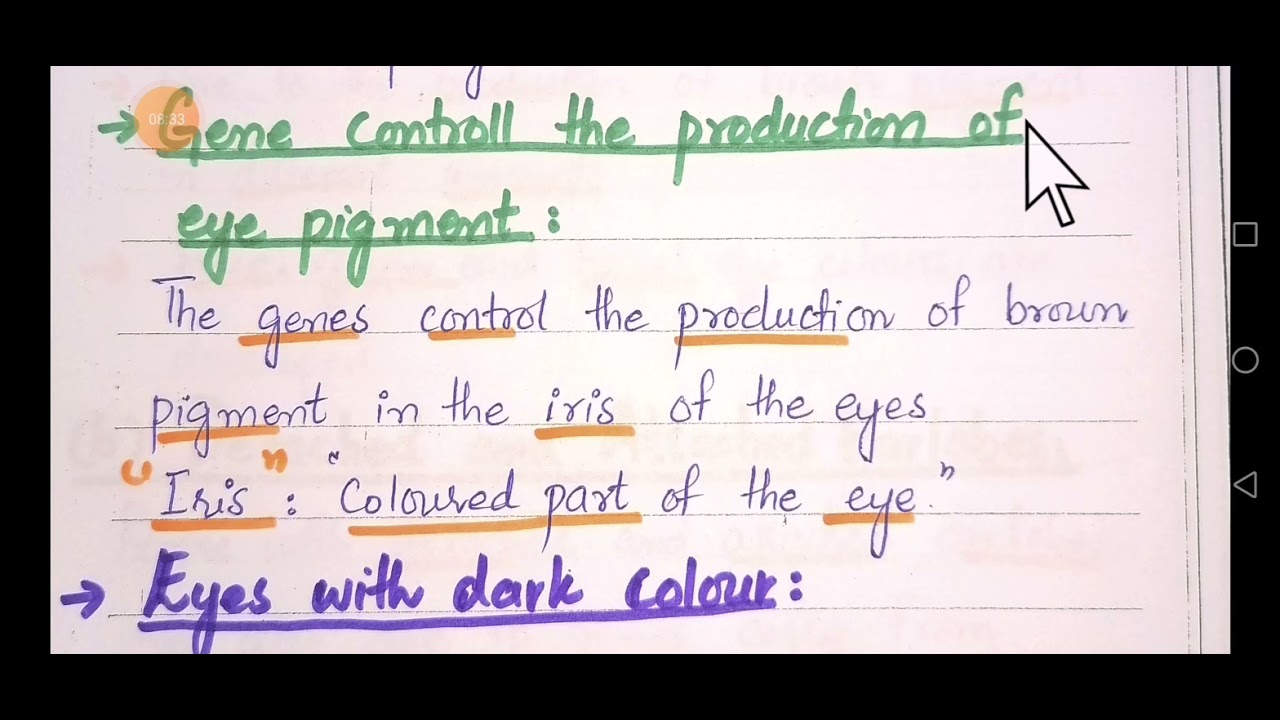 08:33
→ Gene controll the production of
eye pigment :
The genes control the production of brown
pigment in the iris of the eyes
"Iris" : "Coloured part of the eye."
→ Eyes with dark colour :